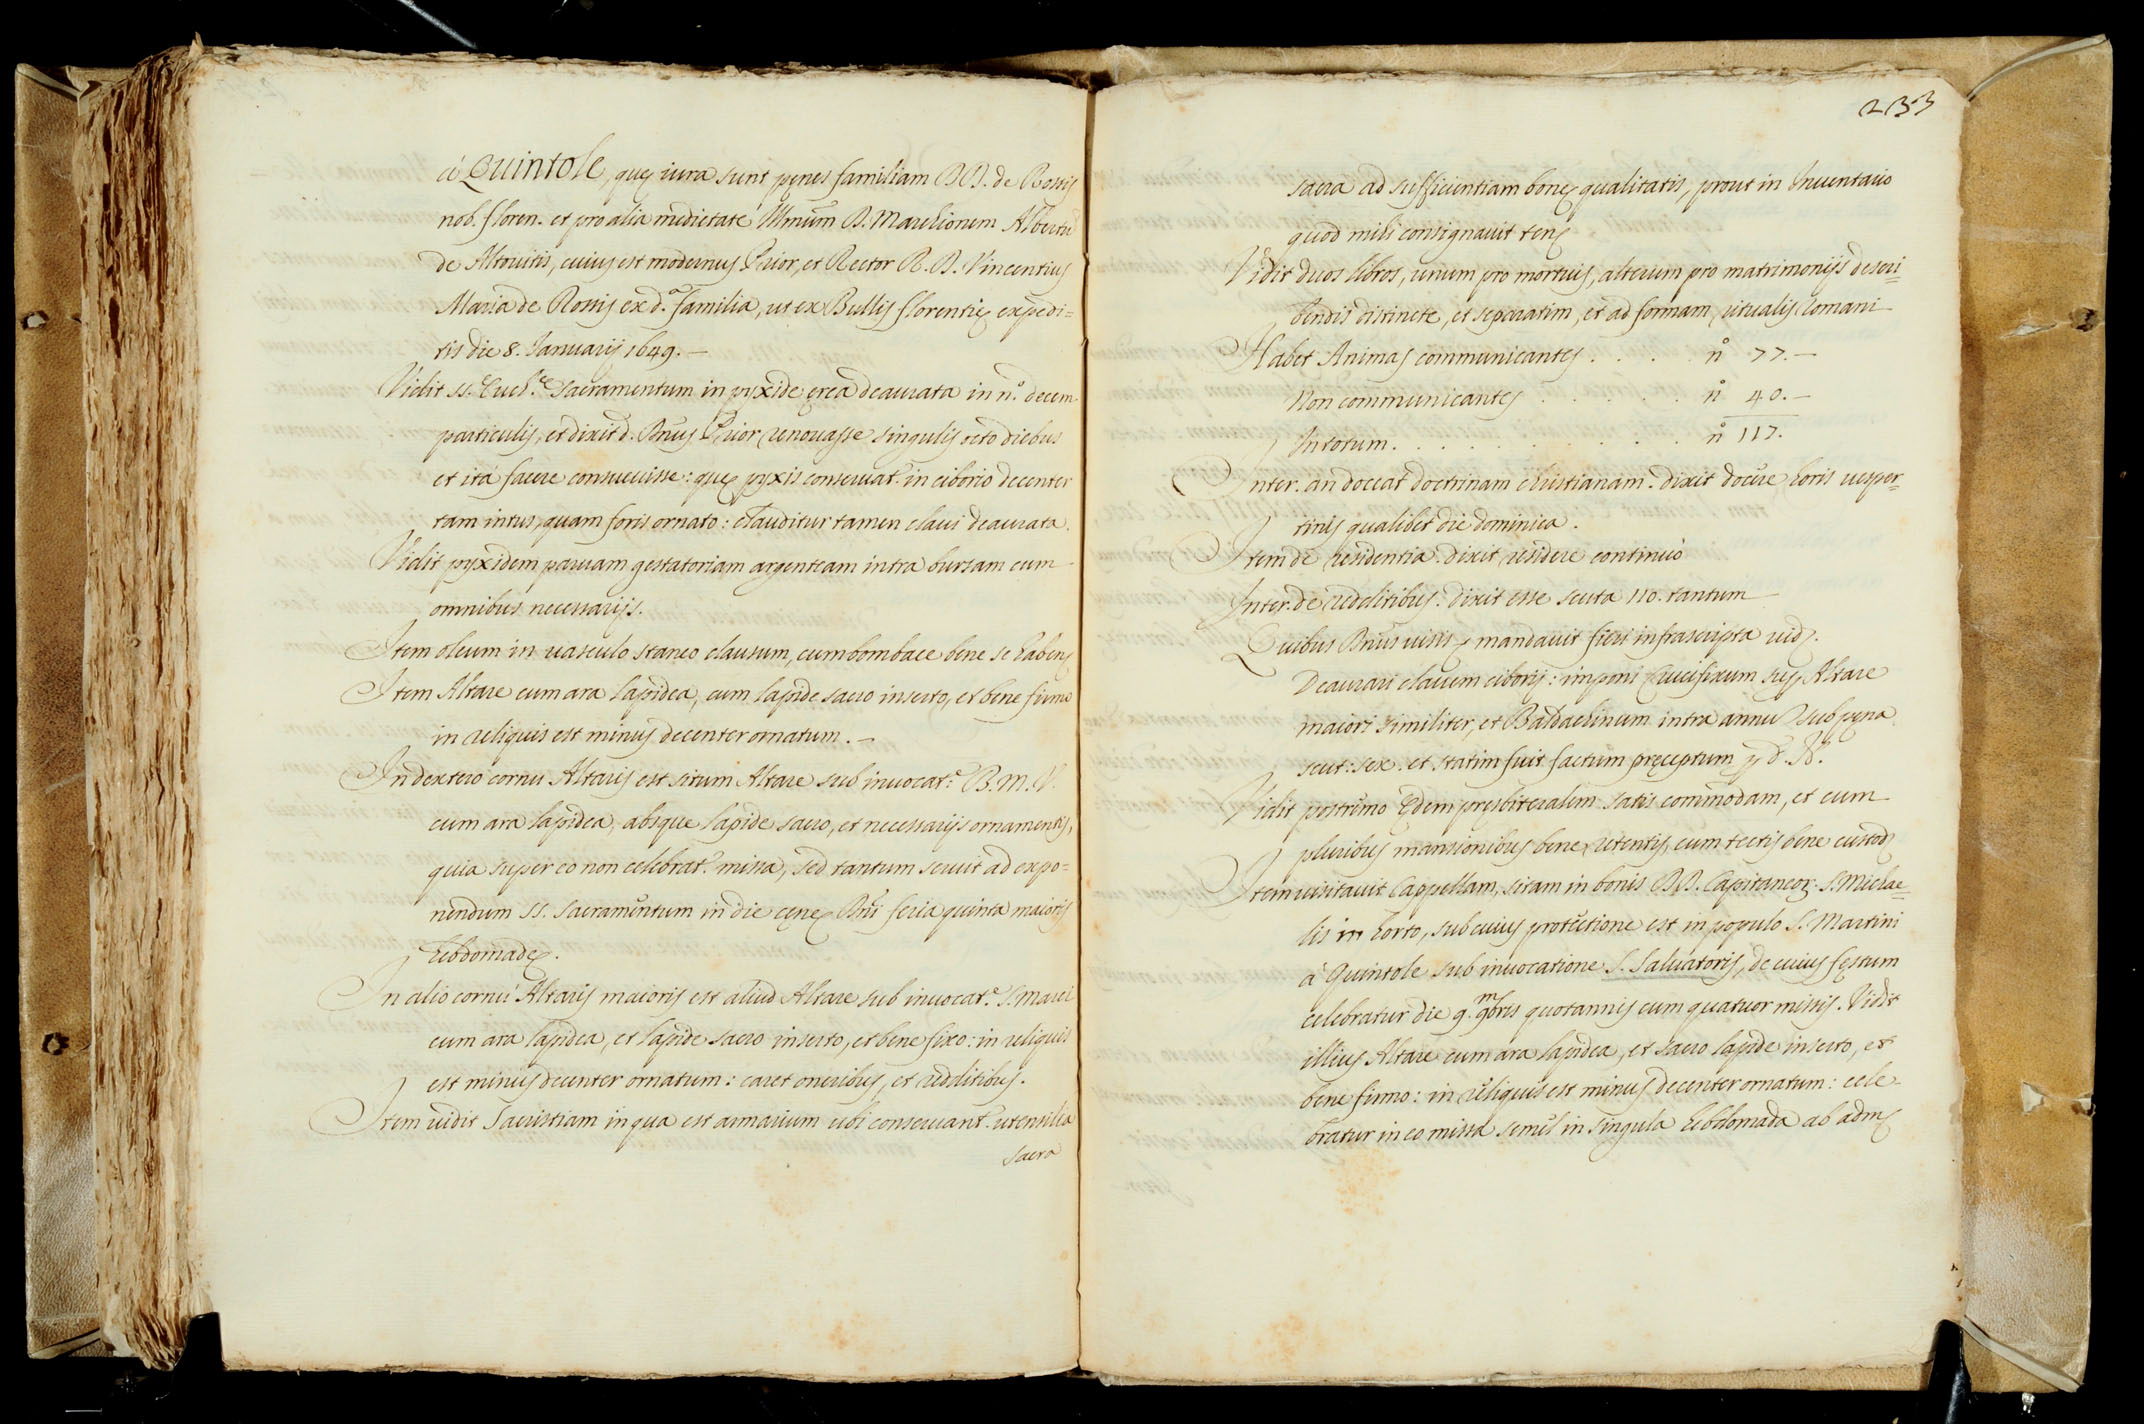 à Quintole, quę iura sunt pęnes familiam DD. de Rossis
nob. floren. et pro alia medietate Illmum D. Marchionem Albertũ
de Altouitis, cuius est modernus Prior, et Rector R. D. Vincentius
Maria de Rossis ex d.ª familia, ut ex Bullis florentię expedi=
tis die 8. Ianuarij 1649. —
Vidit ss. Euch.ę Sacramentum in pyxide ęrea deaurata in n.º decem
particulis, et dixit d. Dnus Prior renouasse singulis octo diebus
et ita facere consueuisse: quę pyxis conseruat.r in ciborio decenter
tam intus, quam foris ornato: clauditur tamen claui deaurata.
Vidit pyxidem paruam gestatoriam argenteam intra bursam cum
omnibus necessarijs.
Item oleum in uasculo staneo clausum, cum bombace bene se habens
Item Altare cum ara lapidea, cum lapide sacro inserto, et bene firmo
in reliquis est minus decenter ornatum. —
In dextero cornu Altaris est situm Altare sub inuocat.e B. M. V.
cum ara lapidea, absque lapide sacro, et necessarijs ornamentis,
quia super eo non celebrat.r missa, sed tantum seruit ad expo=
nendum ss. Sacramentum in die cęnę Dni feria quinta maioris
hebdomadę.
In alio cornu Altaris maioris est aliud Altare sub inuocat.e S. Marci
cum ara lapidea, et lapide sacro inserto, et bene fixo: in reliquis
est minus decenter ornatum: caret oneribus, et redditibus.
Item uidit Sacristiam in qua est armarium ubi conseruant.r utensilia
sacra
233
sacra ad sufficientiam bonę qualitatis, prout in Inuentario
quod mihi consignauit tenę
Vidit duos libros, unum pro mortuis, alterum pro matrimonijs descri=
bendis distincte, et separatim, et ad formam ritualis Romani
Habet Animas communicantes . . . . n.º 77. —
Non communicantes . . . . . n.º 40. —
In totum . . . . . . . . . n.º 117.
Inter. an doceat doctrinam christianam. dixit docere horis uesper=
tinis qualibet die dominica.
Item de residentia. dixit residere continuò
Inter. de redditibus. dixit esse scuta 110. tantum
Quibus Dnus uisis mandauit fieri infrascripta uidę.
Deaurari clauem ciborij: imponi Crucifixum sup. Altare
maiori similiter, et Baldachinum intra annũ sub pęna
scut: sex. et statim fuit factum pręceptum p d. N.
Vidit postremo Ędem presbiteralem satis commodam, et cum
pluribus mansionibus bene retentis, cum tectis bene custodę
Item uisitauit Cappellam, sitam in bonis DD. Capitaneoꝝ S. Michae=
lis in horto, sub cuius protectione est in populo S. Martini
à Quintole sub inuocatione S. Saluatoris, de cuius festum
celebratur die 9. 9mbris quotannis cum quatuor missis. Vidit
illius Altare cum ara lapidea, et sacro lapide inserto, et
bene firmo: in reliquis est minus decenter ornatum: cele=
bratur in eo missa semel in singula hebdomada ab admę